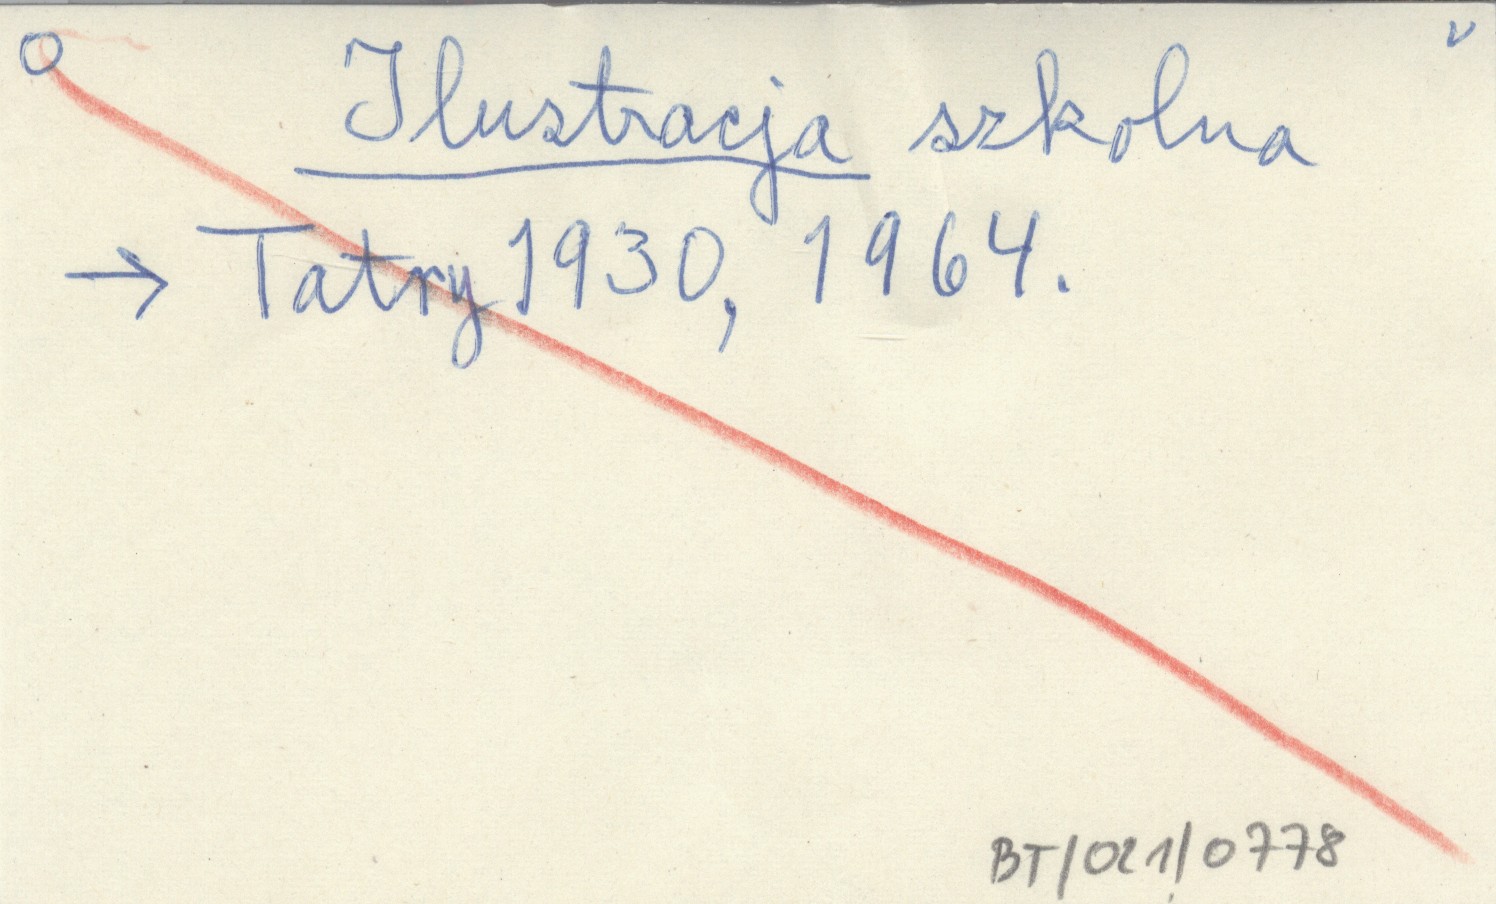 O Ilustracja szkolna v
→ Tatry 1930, 1964.
BT/021/0778